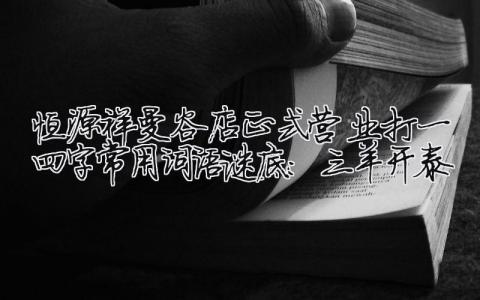 恒源祥曼谷店正式营业打一
四字常用词语谜底：三羊开泰